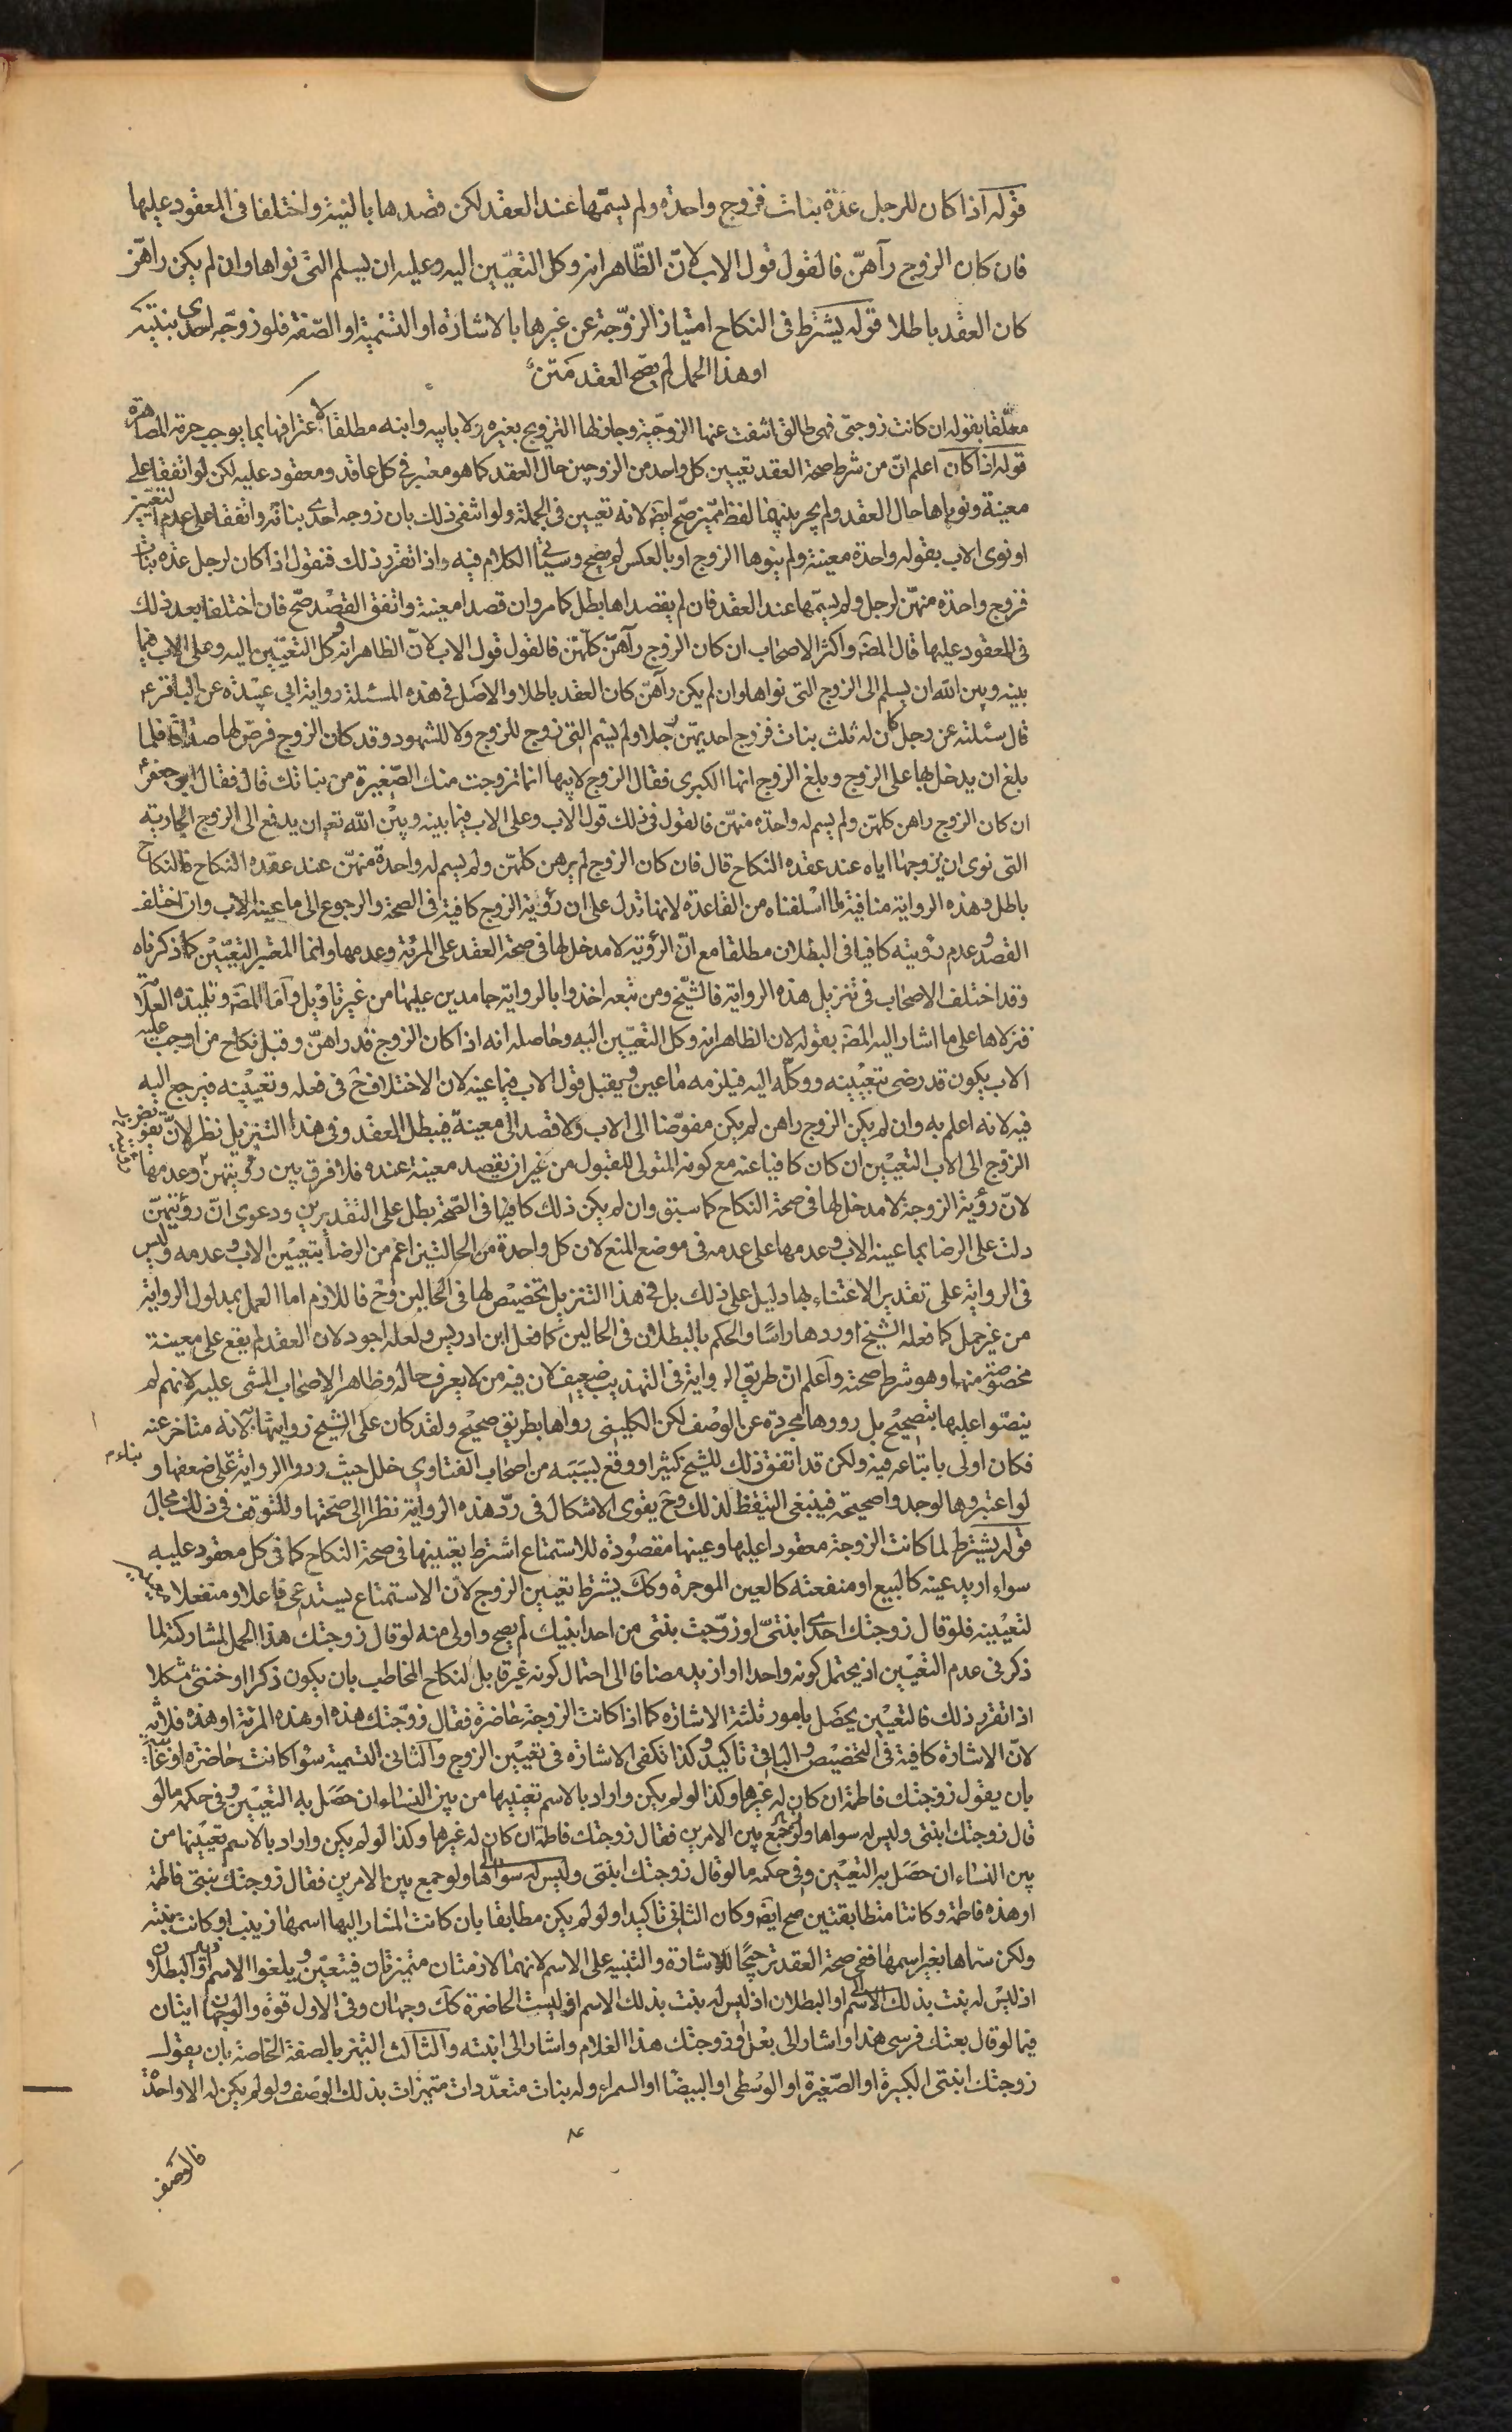 قوله اذا كان للرجل عدة بنات فزوج واحدة ولم يسمّها عند العقد لكن قصدها بالنية واختلفا فى المعقود عليها
فان كان الزوج رآهنّ فالقول قول الاب لانّ الظّاهر انه وكل التعيين اليه وعليه ان يسلم التى نواها وان لم يكن راهنّ
كان العقد باطلا قوله يشترط فى النكاح امتياز الزوّجة عن غيرها بالاشارة او التسمية او الصّفة فلو زوجّه احدى بنتيه
او هذا الحمل لم يصحّ العقد متن
معلّقا بقوله ان كانت زوجتى فهى طالق انتفت عنها الزوجّية وجاز لها التزويج بغيره ولا بابيه وابنه مطلقا لاعترافها بما يوجب حرمة المصاهرة
قوله اذا كان اعلم انّ من شرط صحة العقد تعيين كل واحد من الزوجين حال العقد كما هو معتبر فى كل عاقد ومعقود عليه لكن لو اتفقا على
معينة ونوياها حال العقد ولم يجر بينهما لفظ مميّز صّح ايضا لانه تعيين فى الجملة ولو انتفى ذلك بان زوجه احدى بناته واتفقا على عدم التعيين
او نوى الاب بقوله واحدة معينة ولم ينوها الزوج او بالعكس لم يصح وسيأتى الكلام فيه واذا تقرر ذلك فنقول اذا كان لرجل عدة بنات
فزوج واحدة منهنّ لرجل ولم يسمّها عند العقد فان لم يقصداها بطل كما مر وان قصدا معينة واتفق القصد صّح فان اختلفا بعد ذلك
فى المعقود عليها قال المصّ واكثر الاصحاب ان كان الزوج رآهنّ كلّهنّ فالقول قول الاب لانّ الظاهر انه وكل التعيين اليه وعلى الاب فيما
بينه وبين الله ان يسلم الى الزوج التى نواها وان لم يكن رآهنّ كان العقد باطلا والاصل فى هذه المسئلة رواية ابى عبيدة عن الباقر ع
قال سئلته عن رجل كان له ثلث بنات فزوج احديهنّ رجلا ولم يسم التى زوج للزوج ولا للشهود وقد كان الزوج فرض لها صداقا فلما
بلغ ان يدخل بها على الزوج وبلغ الزوج انها الكبرى فقال الزوج لابيها انما تزوجت منك الصّغيرة من بناتك قال فقال ابو جعفر ع
ان كان الزوج راهن كلهنّ ولم يسم له واحدة منهنّ فالقول فى ذلك قول الاب وعلى الاب فيما بينه وبين الله تعالى ان يدفع الى الزوج الجارية
التى نوى ان يزوجها اياه عند عقده النكاح قال فان كان الزوج لم يرهن كلهنّ ولم يسم له واحدة منهنّ عند عقده النكاح فالنكاح
باطل وهذه الرواية منافية لما اسلفناه من القاعدة لانها تدل على ان رؤية الزوج كافية فى الصحة والرجوع الى ما عينه الاب وان اختلف
القصد وعدم رؤيته كافيا فى البطلان مطلقا مع انّ الرؤية لا مدخل لها فى صحة العقد على المرئة وعدمها وانما المعتبر التعيين كما ذكرناه
وقد اختلف الاصحاب فى تنزيل هذه الرواية فالشيخ ومن تبعه اخذوا بالرواية جامدين عليها من غير تاويل وامّا المصّ وتلميذه العلاّ
فنزلاها على ما اشار اليه المصّ بقوله لان الظاهر انه وكل التعيين اليه وحاصله انه اذا كان الزوج قد راهنّ وقبل نكاح من اوجب عليه
الاب يكون قد رضى بتعيينه ووكله اليه فيلزمه ما عين ويقبل قول الاب فيما عينه لان الاختلاف ح فى فعله وتعيينه فيرجع اليه
فيه لانه اعلم به وان لم يكن الزوج راهن لم يكن مفوّضا الى الاب ولا قصد الى معينة فيبطل العقد وفى هذا التنزيل نظر لانّ تفويض
الزوج الى الاب التعيين ان كان كافيا عنه مع كونه المتولى للقبول من غير ان يقصد معينة عنده فلا فرق بين رؤيتهنّ وعدمها
لانّ رؤية الزوجة لا مدخل لها فى صحة النكاح كما سبق وان لم يكن ذلك كافيا فى الصّحة بطل على التقديرين ودعوى انّ رؤيتهنّ
دلت على الرضا بما عينه الاب وعدمها على عدمه فى موضع المنع لان كل واحدة من الحالتين اعم من الرضا بتعيين الاب وعدمه وليس
فى الرواية على تقدير الاعتناء بها دليل على ذلك بل فى هذا التنزيل تخصيص لها فى الحالين وح فاللازم اما العمل بمدلول الرواية
من غير حمل كما فعله الشيخ او ردها راسًا والحكم بالبطلان فى الحالين كما فعل ابن ادريس ولعله اجود لان العقد لم يقع على معينة
مخصوصة منهما وهو شرط صحته واعلم انّ طريق الرواية فى التهذيب ضعيف لان فيه من لا يعرف حاله وظاهر الاصحاب المشى عليه لانهم لم
ينصّوا عليها بتصحيح بل رووها مجردة عن الوصف لكن الكلينى رواها بطريق صحيح ولقد كان على الشيخ روايتها لانه متاخر عنه
فكان اولى باتباعه فيه ولكن قد اتفق ذلك للشيخ كثيرا ووقع بسببه من اصحاب الفتاوى خلل حيث ردوا الرواية بناء على ضعفها و
لو اعتبروها لوجدوا صحيحة فينبغى التيقظ لذلك وح يقوى الاشكال فى ردّ هذه الرواية نظرا الى صحّتها وللتوقف فى ذلك مجال
قوله يشترط لما كانت الزوجة معقودا عليها وعينها مقصودة للاستمتاع اشترط تعيينها فى صحة النكاح كما فى كل معقود عليه
سواء اريد عينه كالبيع او منفعته كالعين الموجرة وكك يشترط تعيين الزوج لان الاستمتاع يستدعى فاعلا ومنفعلا
لتعيينه فلو قال زوجتك احدى ابنتىّ او زوّجت بنتى من احد ابنيك لم يصح واولى منه لو قال زوجتك هذا الحمل لمشاركته لما
ذكر فى عدم التعيين اذ يحتمل كونه واحدا او ازيد مضافا الى احتمال كونه غير قابل لنكاح المخاطب بان يكون ذكرا او خنثى مشكلا
اذا تقرر ذلك فالتعيين يحصل بامور ثلثة الاشارة كما اذا كانت الزوجة حاضرة فقال زوّجتك هذه او هذه المرئة او هذه فلانه
لانّ الاشارة كافية فى التخصيص والباقى تاكيد وكذا تكفى الاشارة فى تعيين الزوج والثانى التسمية سواء كانت حاضرة او غائبة
بان يقول زوجتك فاطمة ان كان له غيرها وكذا لو لم يكن واراد بالاسم تعيينها من بين النساء ان حصل به التعيين وفى حكمه ما لو
قال زوجتك ابنتى وليس له سواها ولو جمع بين الامرين فقال زوجتك فاطمة ان كان له غيرها وكذا لو لم يكن واراد بالاسم تعيينها من
بين النساء ان حصل به التعيين وفى حكمه ما لو قال زوجتك ابنتى وليس له سواها ولو جمع بين الامرين فقال زوجتك بنتى فاطمة
او هذه فاطمة وكانتا متطابقتين صح ايضا وكان الثانى تاكيدا ولو لم يكن مطابقا بان كانت المشار اليها اسمها زينب او كانت بنته
ولكن سماها بغير اسمها ففى صحة العقد ترجيحًا للاشارة والتنبيه على الاسم لانهما لازمتان متميزتان فيتعين ويلغوا الاسم او البطلان
اذ ليس له بنت بذلك الاسم او البطلان اذ ليس له بنت بذلك الاسم او ليست الحاضرة كك وجهان وفى الاول قوة والوجهان اتيان
فيما لو قال بعتك فرسى هذا واشار الى بغل او زوجتك هذا الغلام واشار الى ابنته والثالث التميز بالصفة الخاصة بان يقول
زوجتك ابنتى الكبيرة او الصّغيرة او الوسطى او البيضا او السمراء وله بنات متعدّدات متميزات بذلك الوصف ولو لم يكن له الا واحدة
فالوصف